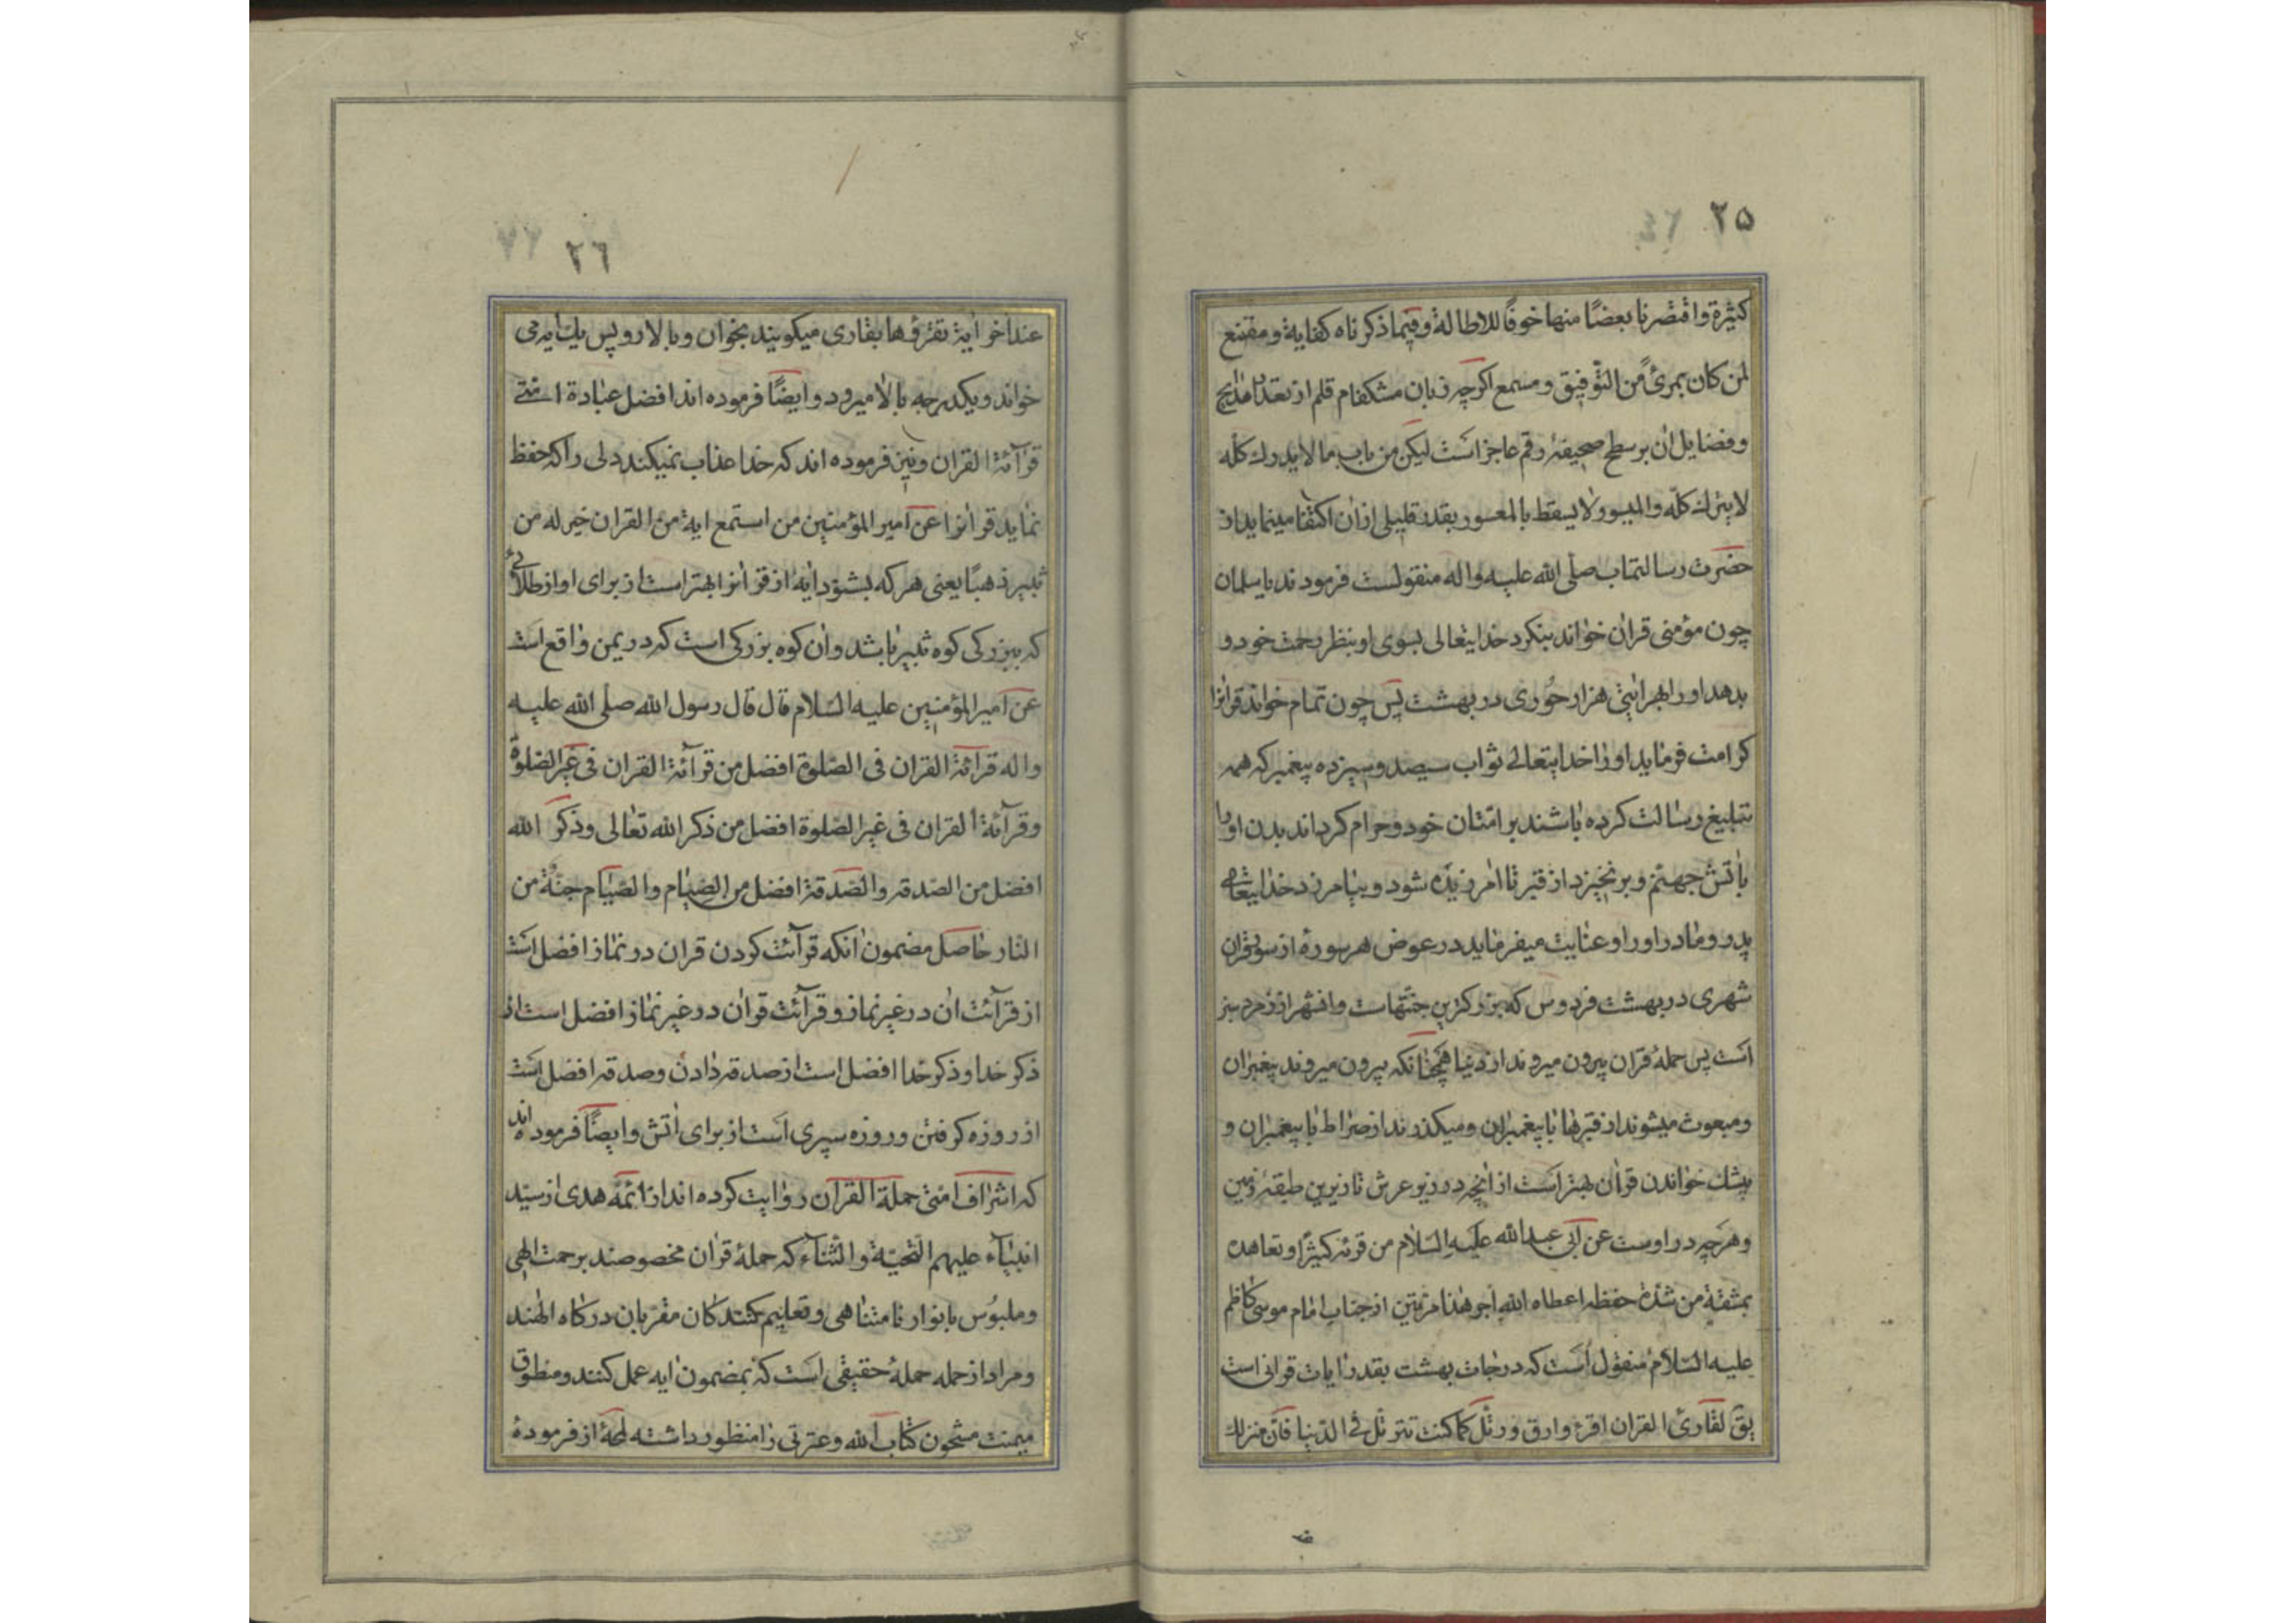 ٢٥
كثيرة واقتصرنا بعضًا منها خوفًا للاطالة وفيما ذكرناه كفاية ومقنع
لمن كان بمرئ من التوفيق ومسمع اكرچه زبان مشكفام قلم از تعداد مدايح
وفضايل ان بر سطح صحيفۀ رقم عاجز است ليكن من باب ما لا يدرك كلّه
لا يترك كلّه والميسور لا يسقط بالمعسور بقدر قليلى از ان اكتفا مينمايد از
حضرت رسالتماب صلى الله عليه واله منقولست فرمودند يا سلمان
چون مؤمنى قران خواند بنكرد خدايتعالى بسوى او بنظر رحمت خود و
بدهد او را بهر ايتى هزار حورى در بهشت پس چون تمام خواند قرانرا
كرامت فرمايد او را خدايتعالى ثواب سيصد و سيزده پيغمبر كه همه
تبليغ رسالت كرده باشند بر امتان خود و حرام كرداند بدن او را
باتش جهنم و بر نخيزد از قبر تا امرزيده شود و بيامرزد خدايتعالى
پدر و مادر او را و عنايت ميفرمايد در عوض هر سورۀ از سور قران
شهرى در بهشت فردوس كه بزركترين جنتهاست و انشهر از زمرد سبز
است پس حملۀ قران بيرون ميروند از دنيا همچنانكه بيرون ميروند پيغمبران
ومبعوث ميشوند از قبرها با پيغمبران و ميكذرند از صراط با پيغمبران و
بيشك خواندن قران بهتر است از انچه در زير عرش تا زيرين طبقۀ زمين
وهرچه در اوست عن ابى عبد الله عليه السلام من قرئه كثيرًا وتعاهده
بمشقة من شدة حفظه اعطاه الله اجر هذا مرتين از جناب امام موسى كاظم
عليه السلام منقول است كه درجات بهشت بقدر ايات قرانى است
يق لقارئ القران اقرء وارق ورتل كما كنت ترتل فى الدنيا فان منزلك
٢٦
عند اخر اية تقرؤها بقارى ميكويند بخوان و بالا رو پس يك ايه مى
خواند و يكدرجه بالا ميرود و ايضًا فرموده اند افضل عبادة امتى
قرآئة القران ونيز فرموده اند كه خدا عذاب نميكند دلى را كه حفظ
نمايد قرانرا عن امير المؤمنين من استمع اية من القران خير له من
ثبير ذهبًا يعنى هر كه بشنود ايه از قرانرا بهتر است از براى او از طلائى
كه ببزركى كوه ثبير باشد وان كوه بزركى است كه در يمن واقع است
عن امير المؤمنين عليه السلام قال قال رسول الله صلى الله عليه
واله قرآئة القران فى الصلوة افضل من قرآئة القران فى غير الصلوة
وقرآئة القران فى غير الصلوة افضل من ذكر الله تعالى وذكر الله
افضل من الصدقه والصدقة افضل من الصيام والصيام جنة من
النار حاصل مضمون انكه قرآئت كردن قران در نماز افضل است
از قرآئت ان در غير نماز و قرآئت قران در غير نماز افضل است از
ذكر خدا وذكر خدا افضل است از صدقه دادن وصدقه افضل است
از روزه كرفتن و روزه سپرى است از براى اتش وايضًا فرموده اند
كه اشراف امتى حملة القران روايت كرده اند از ائمه هدى از سيد
انبياء عليهم التحية والثناء كه حملۀ قران مخصوصند برحمت الهى
وملبوس بانوار نامتناهى وتعليم كنندكان مقربان دركاه الهند
ومراد از حمله حملۀ حقيقى است كه بمضمون ايه عمل كنند ومنطوق
ميمنت مشحون كتاب الله وعترتى را منظور داشته لمحۀ از فرمودۀ